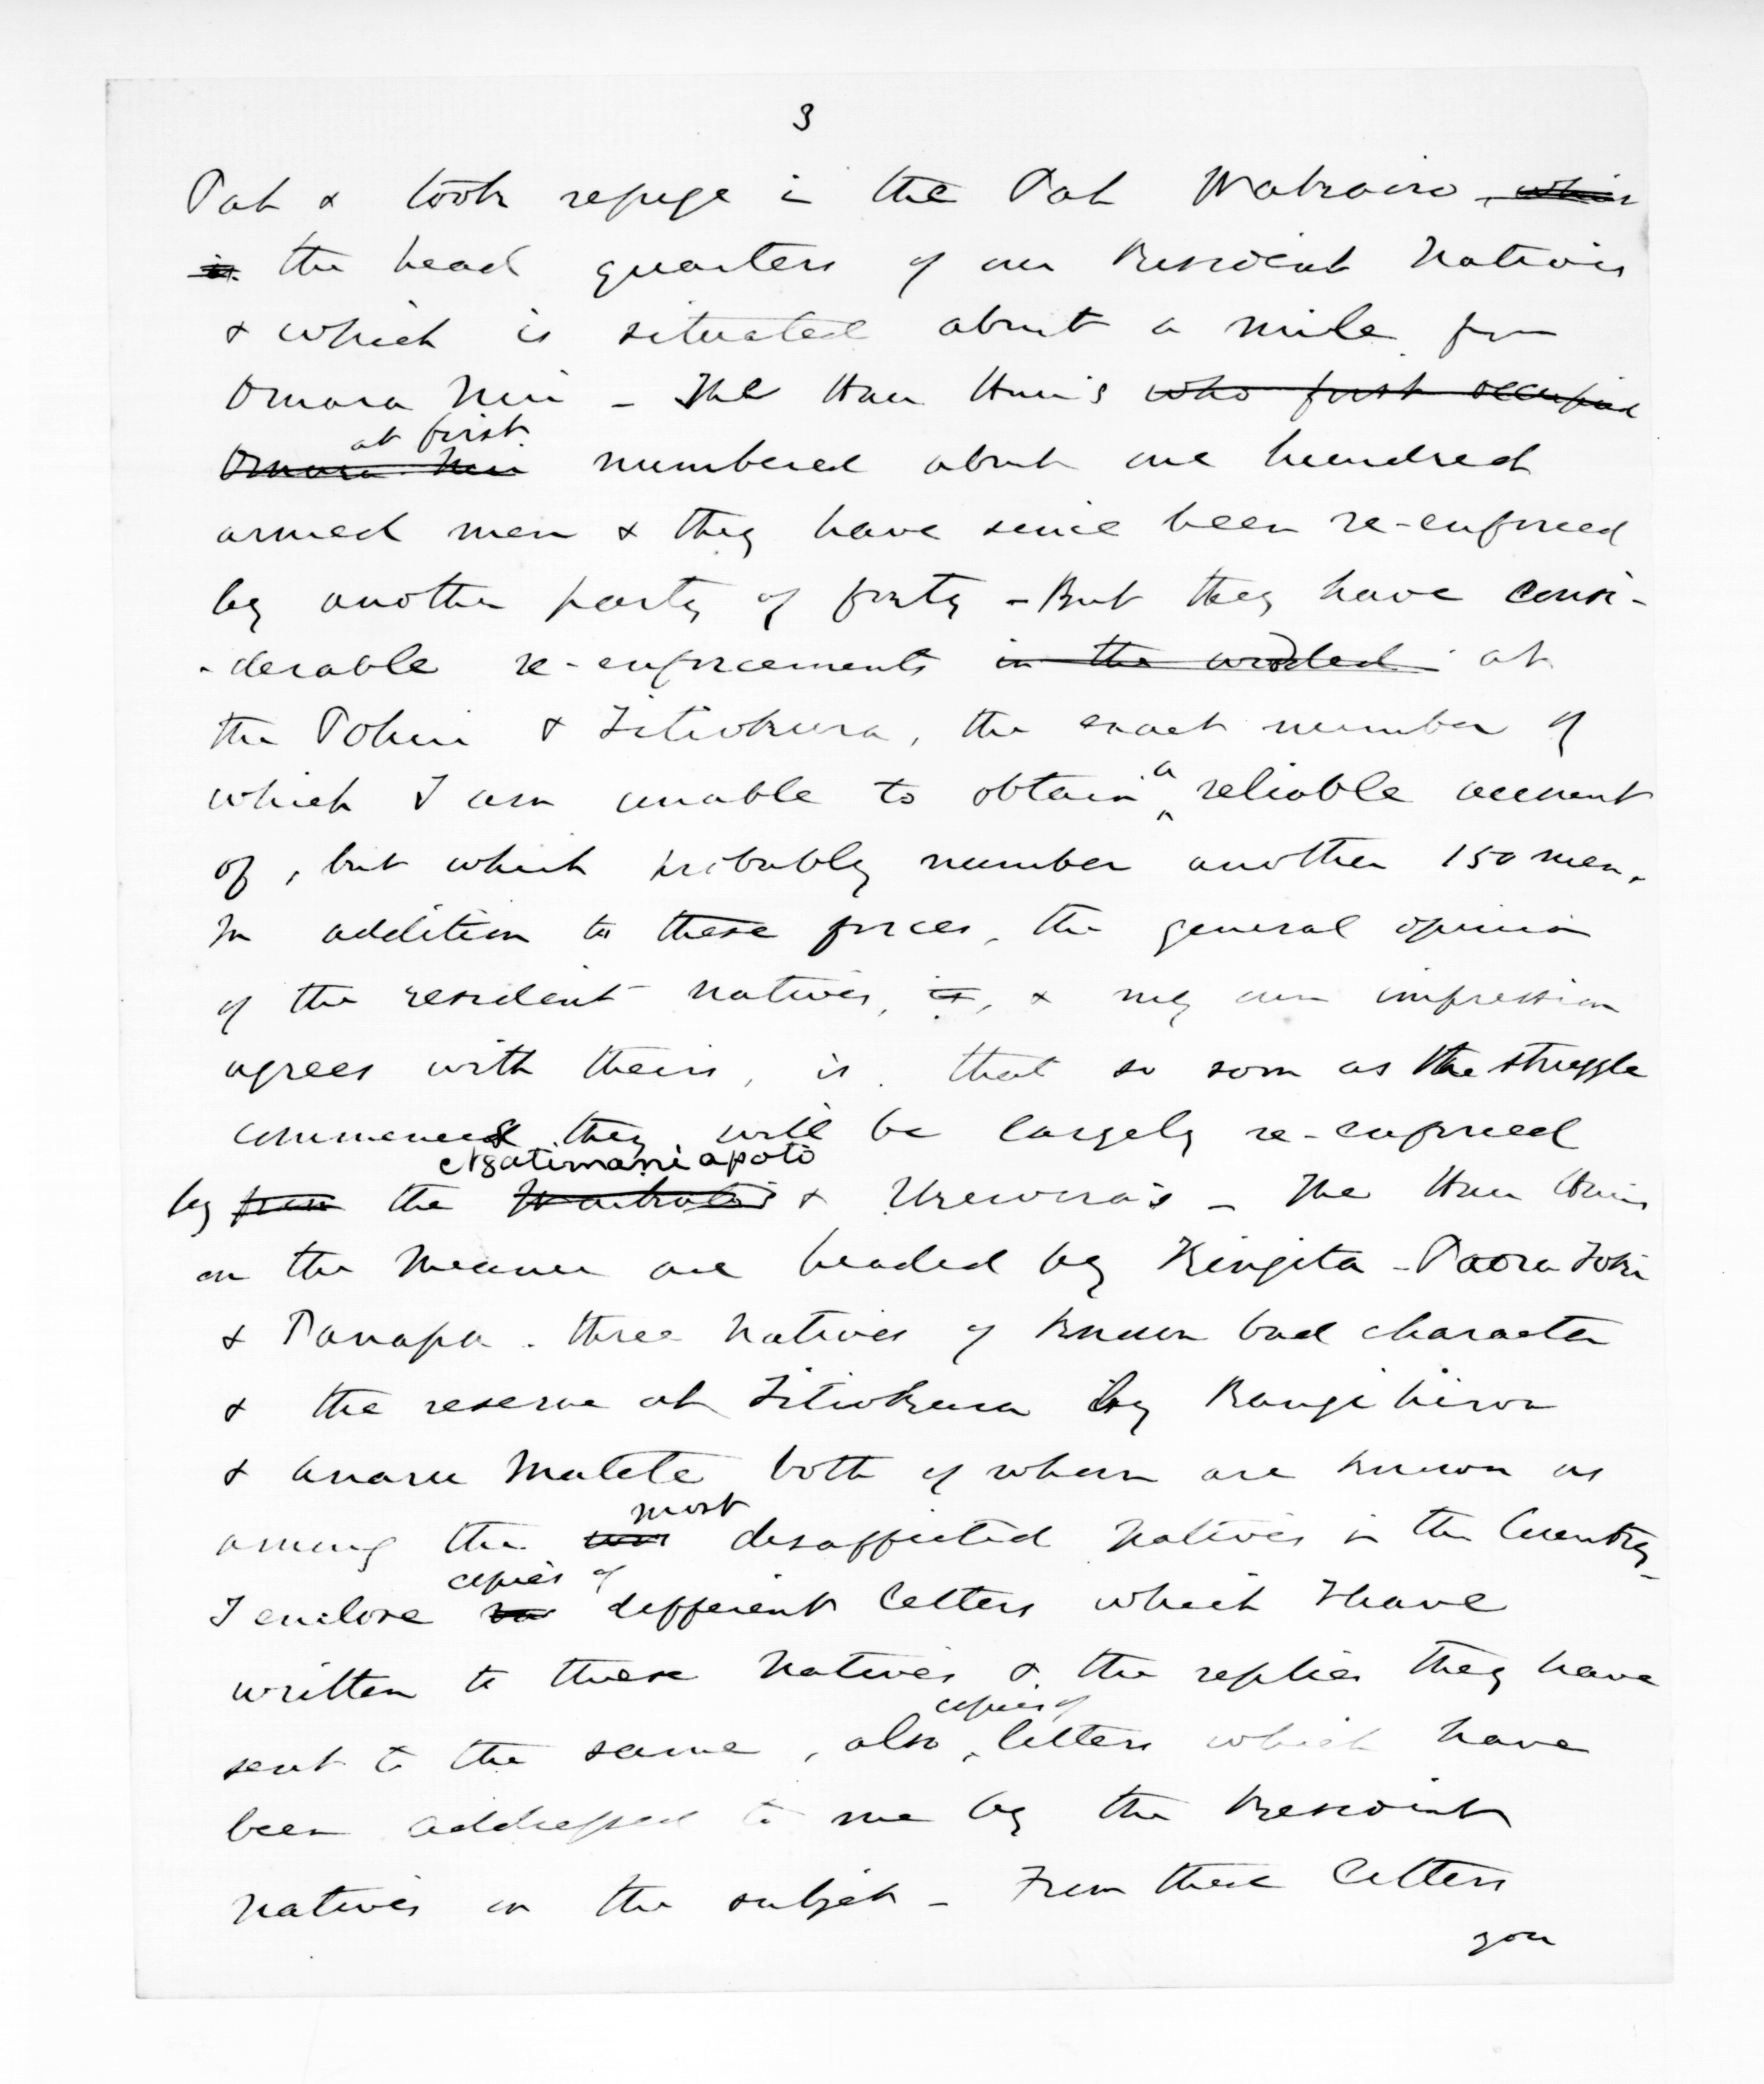 3
Pah & took refuge in the Pah Wakaairo, which
is the head quarters of our Resident Natives
& which is situated about a mile from
Omara Nui - The Hau Hau's who first occupied
at first
Omara Nui numbered about one hundred
armed men & they have since been re-enforced
by another party of forty - But they have consi-
-derable re-enforcements in the wooded at
the Pohui & Titiokura, the exact number of
a
which I am unable to obtain reliable account
of, but which probably number another 150 men.
In addition to these forces, the general opinion
of the resident natives, is, & my own impression
agrees with theirs, is that so soon as the struggle
commences they will be largely re-enforced
Ngatimaniapoto
by from the Waikatos & Urewera's - The Hau Haus
on the Meanee are headed by Kingita - Paora Toki
& Panapa. three Natives of known bad character
& the reserve at Titiokura by Rangihiroa
& Anaru Matete both of whom are known as
most
among the disaffected Natives in the Country -
copies of
I enclose different letters which I have
written to these Natives & the replies they have
copies of
sent to the same, also letters which have
been addressed to me by the Resident
Natives on the subject - From these letters
you